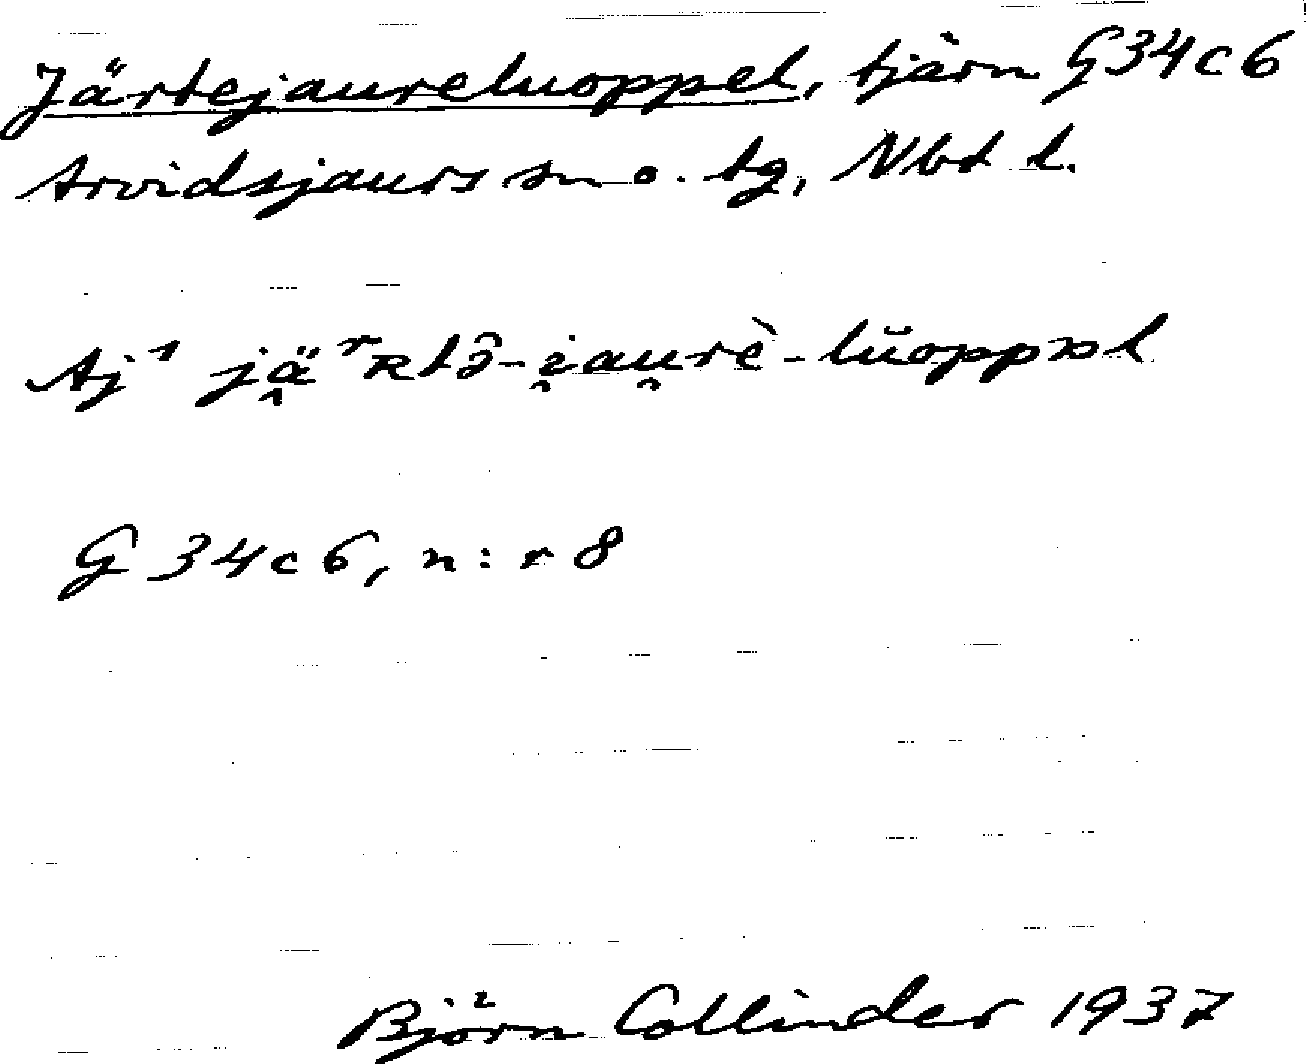 Järtejaureluoppel, tjärn G34c6
Arvidsjaurs sn o. tg, Nbt l.
Aj¹ jä̭ʳʀtə̂-i̭au̯rè-lŭoppᴅl
G 34c6, n:r 8
Björn Collinder 1937